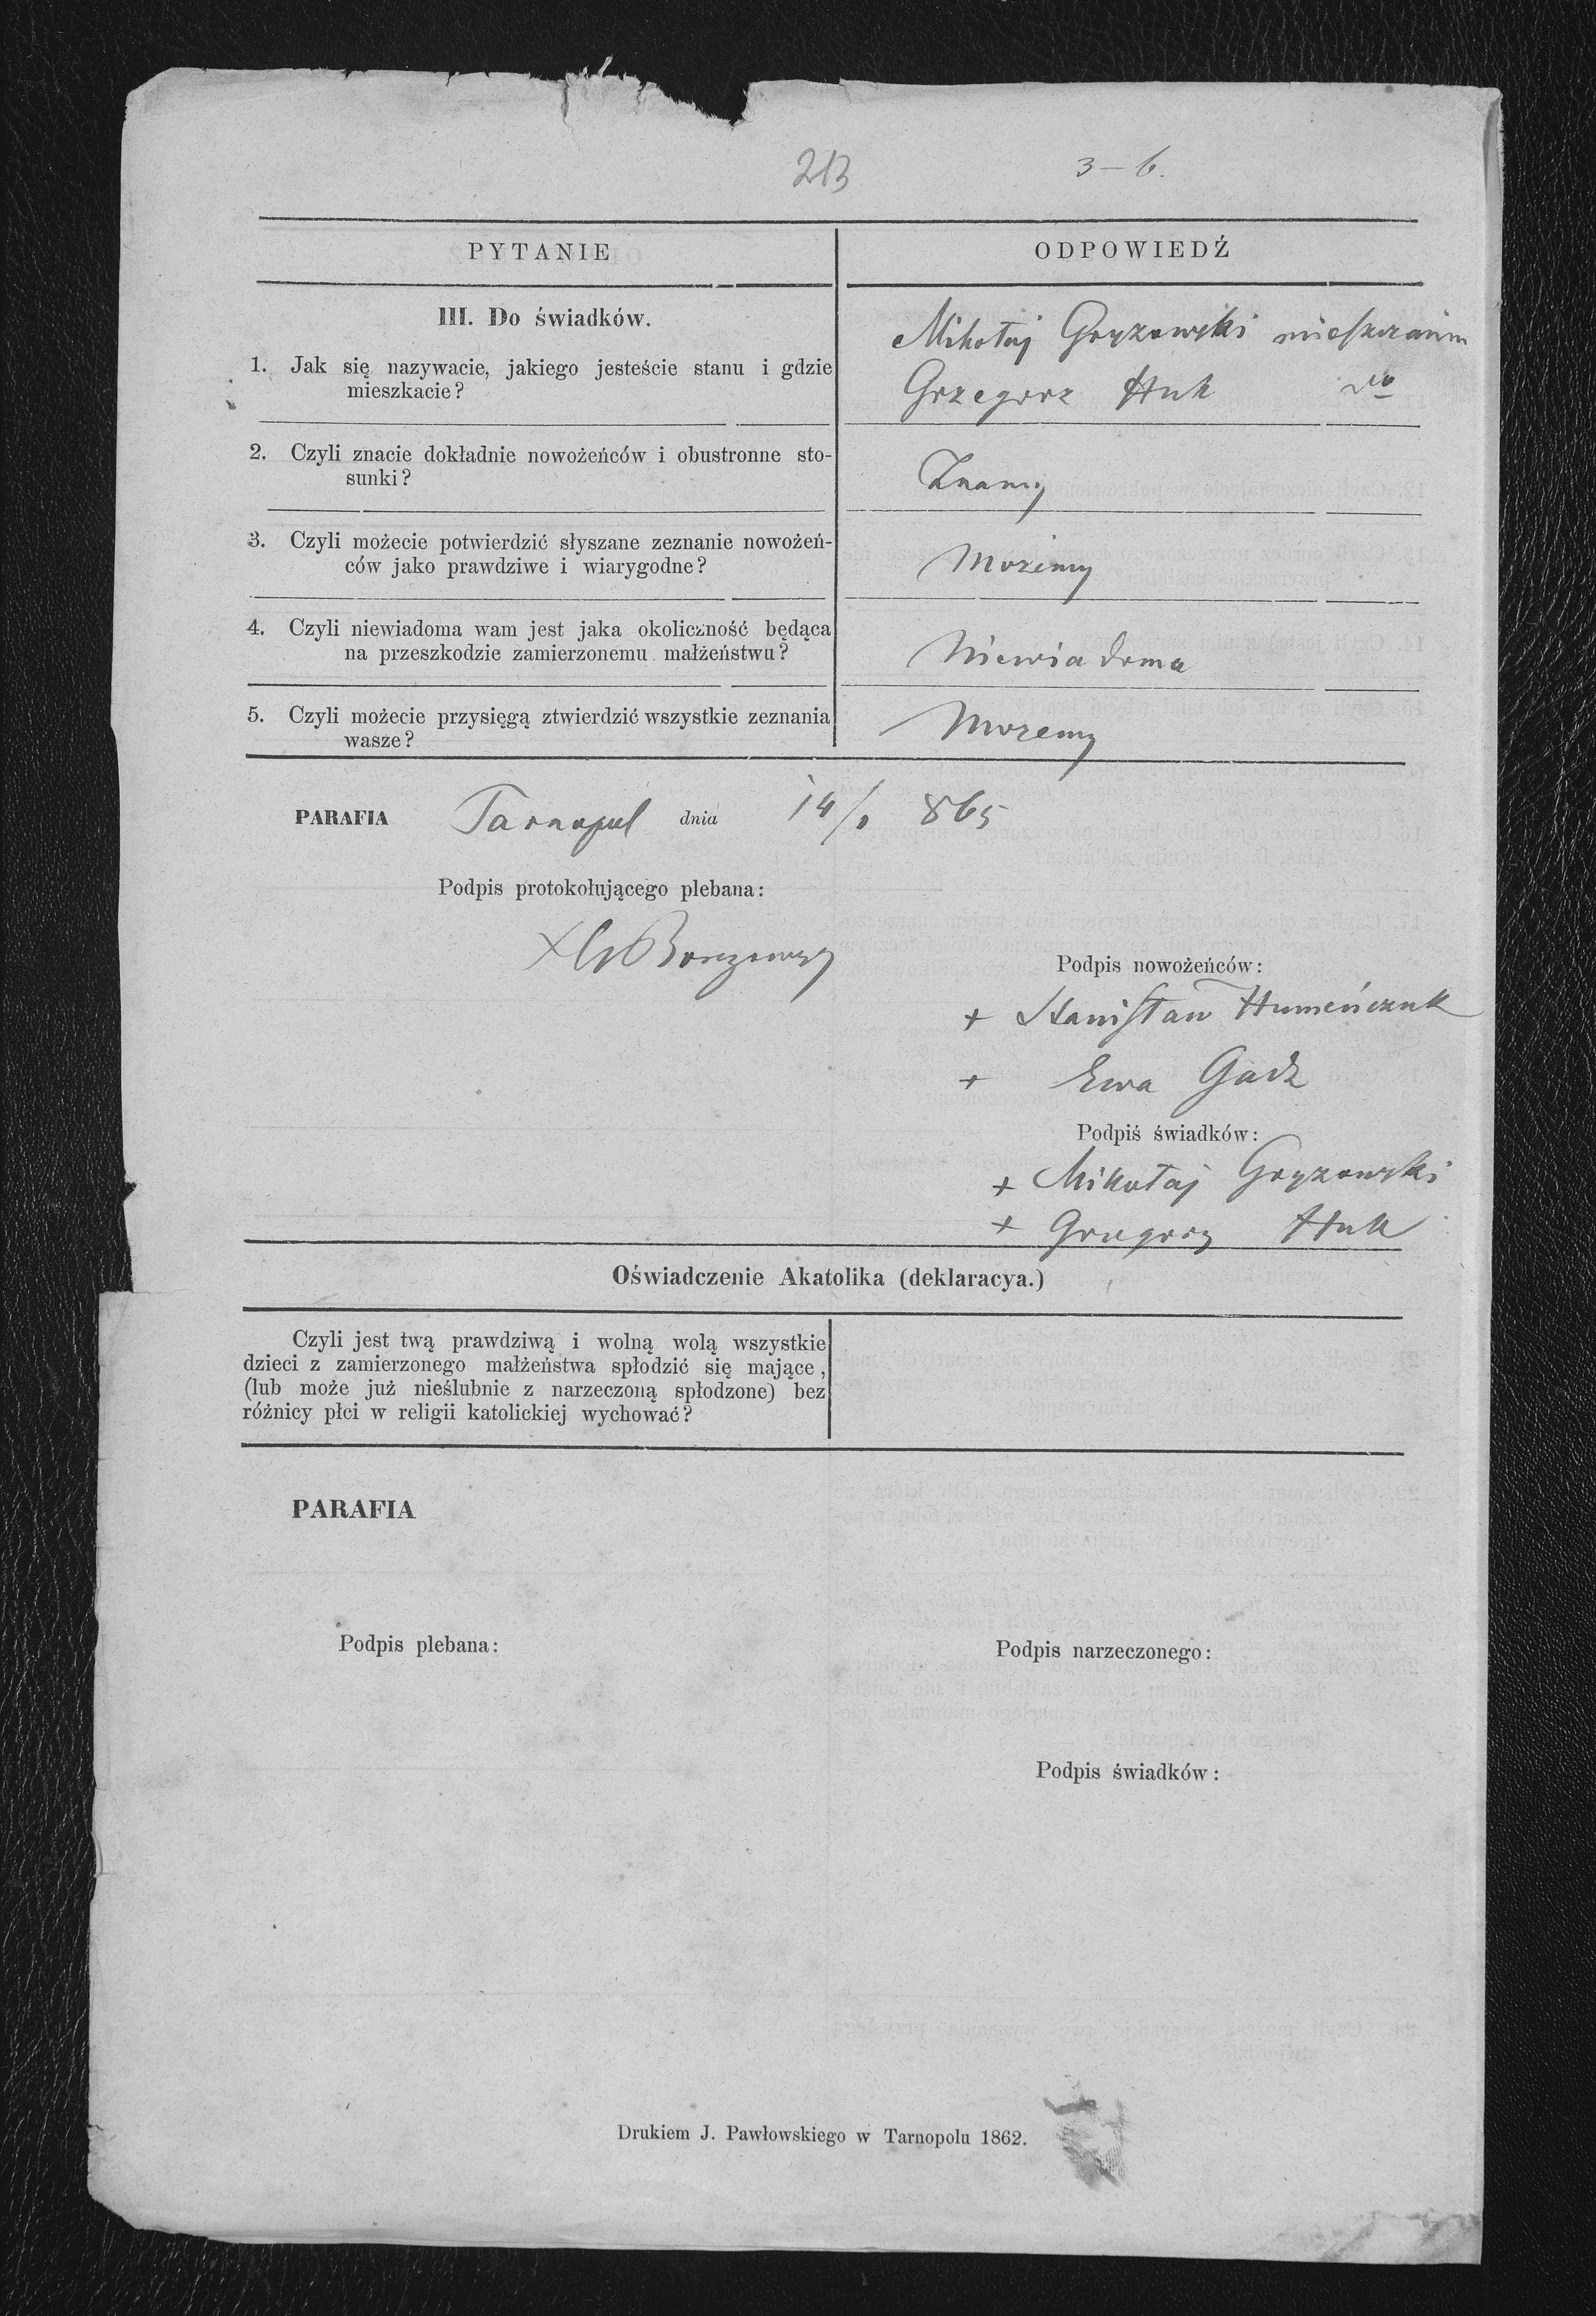 213 3–6.
PYTANIE ODPOWIEDŹ
III. Do świadków.
1. Jak się nazywacie, jakiego jesteście stanu i gdzie
mieszkacie?
Mikołaj Gryzowski mieszczanin
Grzegorz Huk dto
2. Czyli znacie dokładnie nowożeńców i obustronne sto-
sunki?
Znamy
3. Czyli możecie potwierdzić słyszane zeznanie nowożeń-
ców jako prawdziwe i wiarygodne?
Możemy
4. Czyli niewiadoma wam jest jaka okoliczność będąca
na przeszkodzie zamierzonemu małżeństwu?
Niewiadoma
5. Czyli możecie przysięgą ztwierdzić wszystkie zeznania
wasze?
Mozemy
PARAFIA Tarnopol dnia 14/ 865
Podpis protokołującego plebana:
Podpis nowożeńców:
+ Stanisław Humeńczuk
+ Ewa Gadz
Podpiś świadków:
+ Mikołaj Gryzowski
+ Grzegorz Huk
Oświadczenie Akatolika (deklaracya.)
Czyli jest twą prawdziwą i wolną wolą wszystkie
dzieci z zamierzonego małżeństwa spłodzić się mające,
(lub może już nieślubnie z narzeczoną spłodzone) bez
różnicy płci w religii katolickiej wychować?
PARAFIA
Podpis plebana:
Podpis narzeczonego:
Podpis świadków:
Drukiem J. Pawłowskiego w Tarnopolu 1862.